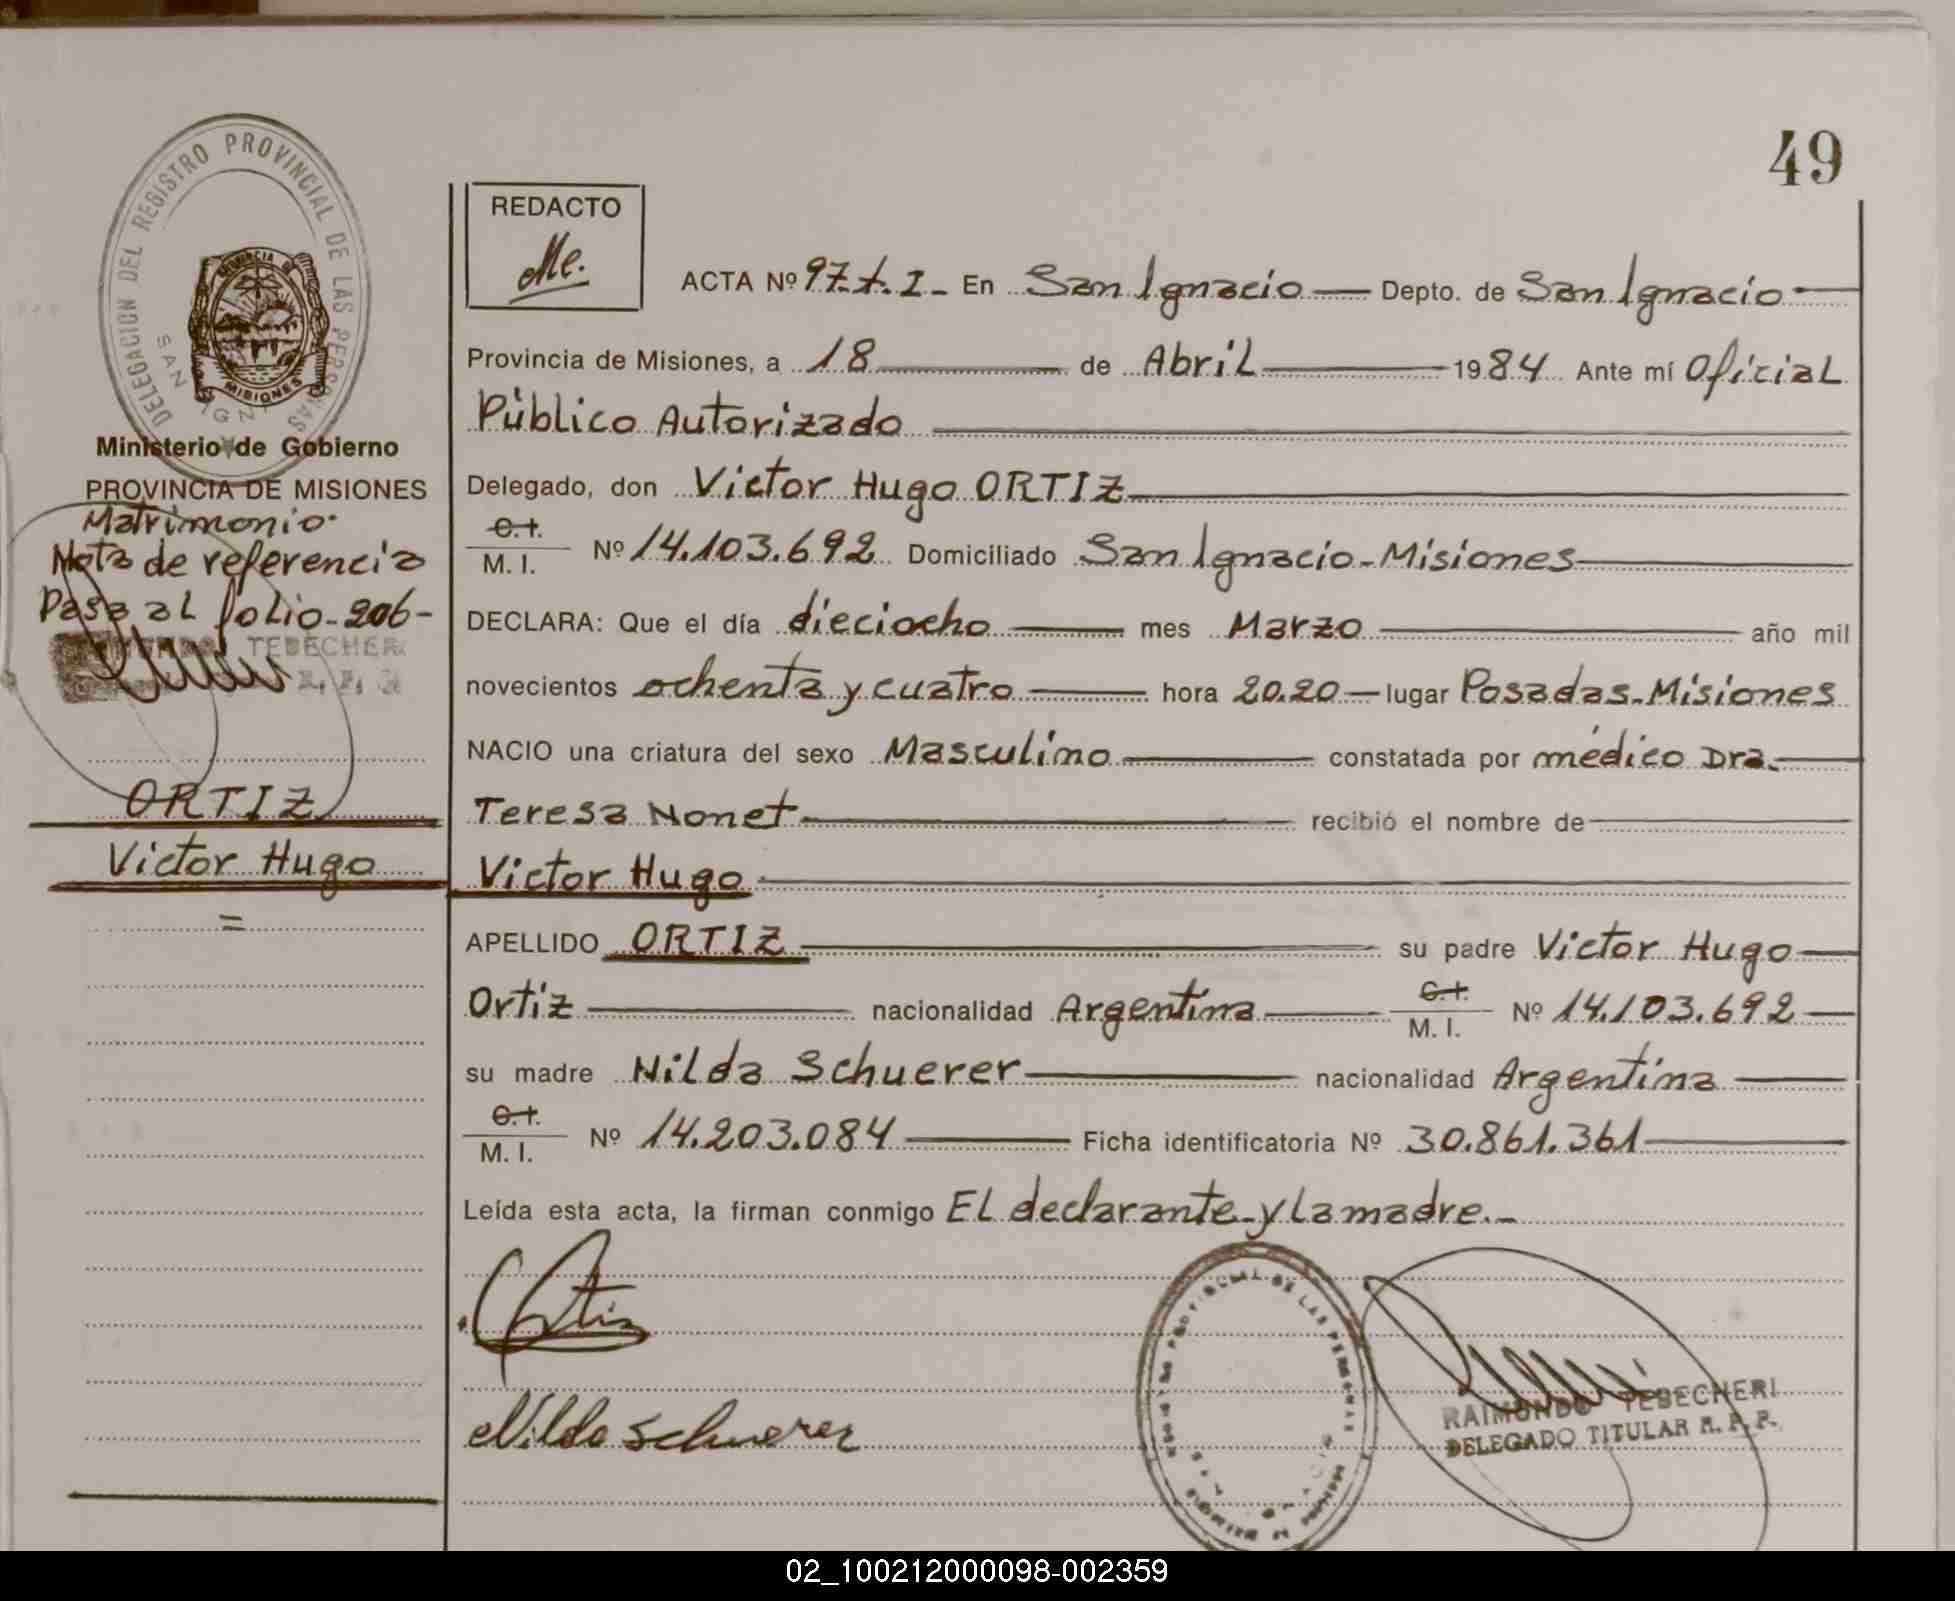 49
DELEGACION DEL REGISTRO PROVINCIAL DE LAS PERSONAS
SAN IGN
PROVINCIA DE
MISIONES
Ministerio de Gobierno
PROVINCIA DE MISIONES
Matrimonio.
Nota de referencia
Pasa al folio-206-
TEBECHERI
ORTIZ
Victor Hugo
=
REDACTO
ACTA Nº 97.t.I- En San Ignacio Depto. de San Ignacio
Provincia de Misiones, a 18 de Abril 1984 Ante mí Oficial
Público Autorizado
Delegado, don Victor Hugo ORTIZ
C.I.
M. I. Nº 14.103.692 Domiciliado San Ignacio-Misiones
DECLARA: Que el día dieciocho mes Marzo año mil
novecientos ochenta y cuatro hora 20.20 lugar Posadas-Misiones
NACIO una criatura del sexo Masculino constatada por médico Dra.
Teresa Nonet recibió el nombre de
Victor Hugo
APELLIDO ORTIZ su padre Victor Hugo
Ortiz nacionalidad Argentina C.I. M. I. Nº 14.103.692
su madre Nilda Schuerer nacionalidad Argentina
C.I.
M. I. Nº 14.203.084 Ficha identificatoria Nº 30.861.361
Leída esta acta, la firman conmigo EL declarante-y La madre.-
Ortiz
Nilda Schuerer
PROVINCIAL DE LAS PERSONAS
RAIMUNDO TEBECHERI
DELEGADO TITULAR R. P. P.
02_100212000098-002359